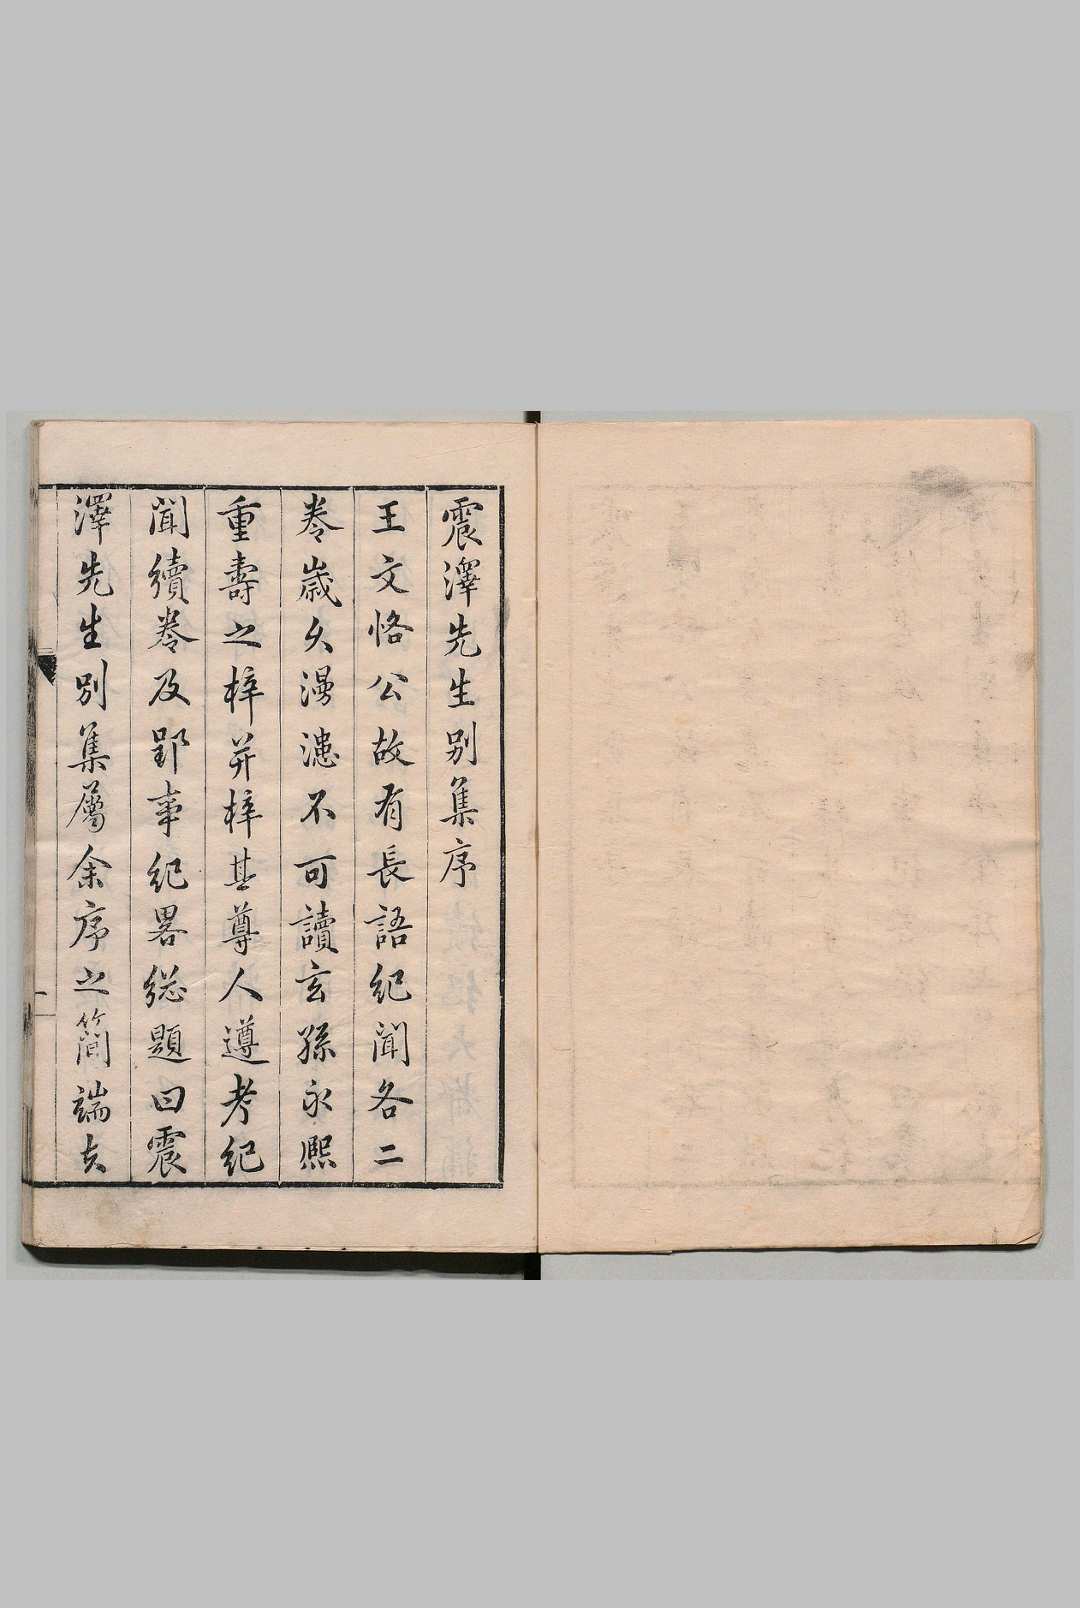 震澤先生別集序
王文恪公故有長語紀聞各二
卷歲久漫漶不可讀玄孫永熙
重壽之梓并梓其尊人遵考紀
聞續卷及郢事紀畧總題曰震
澤先生別集屬余序之簡端夫